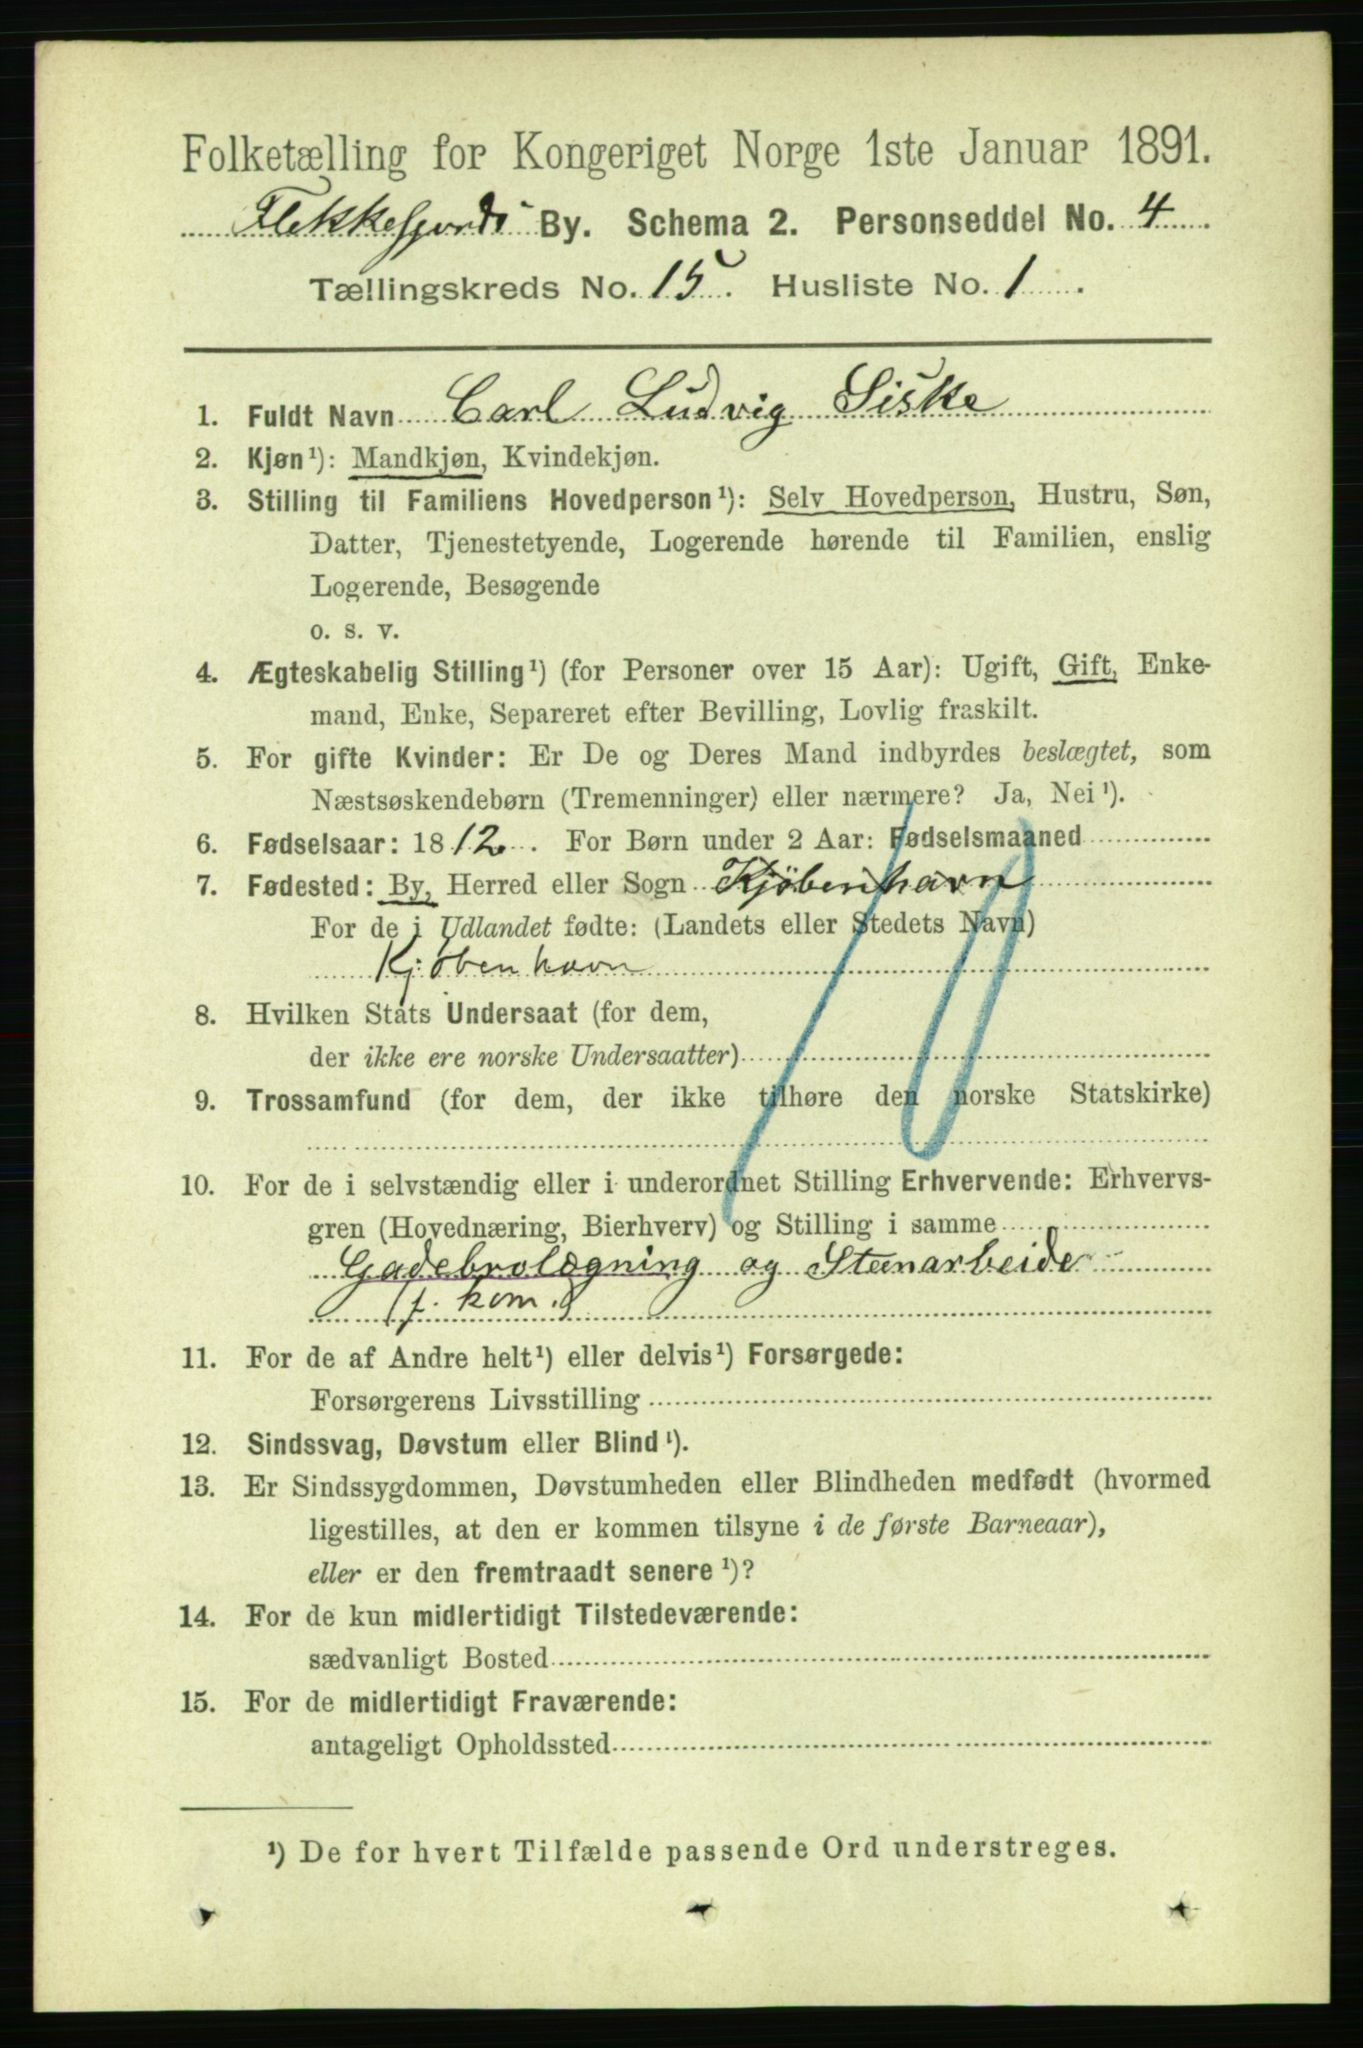 Folketælling for Kongeriget Norge 1ste Januar 1891.
Flekkefjords By. Schema 2. Personseddel No. 4
Tællingskreds No. 15. Husliste No. 1.
1. Fuldt Navn Carl Ludvig Siske
2. Kjøn¹): Mandkjøn, Kvindekjøn.
3. Stilling til Familiens Hovedperson¹): Selv Hovedperson, Hustru, Søn,
Datter, Tjenestetyende, Logerende hørende til Familien, enslig
Logerende, Besøgende
o. s. v.
4. Ægteskabelig Stilling¹) (for Personer over 15 Aar): Ugift, Gift, Enke-
mand, Enke, Separeret efter Bevilling, Lovlig fraskilt.
5. For gifte Kvinder: Er De og Deres Mand indbyrdes beslægtet, som
Næstsøskendebørn (Tremenninger) eller nærmere? Ja, Nei¹).
6. Fødselsaar: 1812. For Børn under 2 Aar: Fødselsmaaned
7. Fødested: By, Herred eller Sogn Kjöbenhavn
For de i Udlandet fødte: (Landets eller Stedets Navn)
Kjøbenhavn
8. Hvilken Stats Undersaat (for dem,
der ikke ere norske Undersaatter)
9. Trossamfund (for dem, der ikke tilhøre den norske Statskirke)
10. For de i selvstændig eller i underordnet Stilling Erhvervende: Erhvervs-
gren (Hovednæring, Bierhverv) og Stilling i samme
Gadebrolægning og Steenarbeide
(f. kom.)
11. For de af Andre helt¹) eller delvis¹) Forsørgede:
Forsørgerens Livsstilling
12. Sindssvag, Døvstum eller Blind¹).
13. Er Sindssygdommen, Døvstumheden eller Blindheden medfødt (hvormed
ligestilles, at den er kommen tilsyne i de første Barneaar),
eller er den fremtraadt senere¹)?
14. For de kun midlertidigt Tilstedeværende:
sædvanligt Bosted
15. For de midlertidigt Fraværende:
antageligt Opholdssted
¹) De for hvert Tilfælde passende Ord understreges.